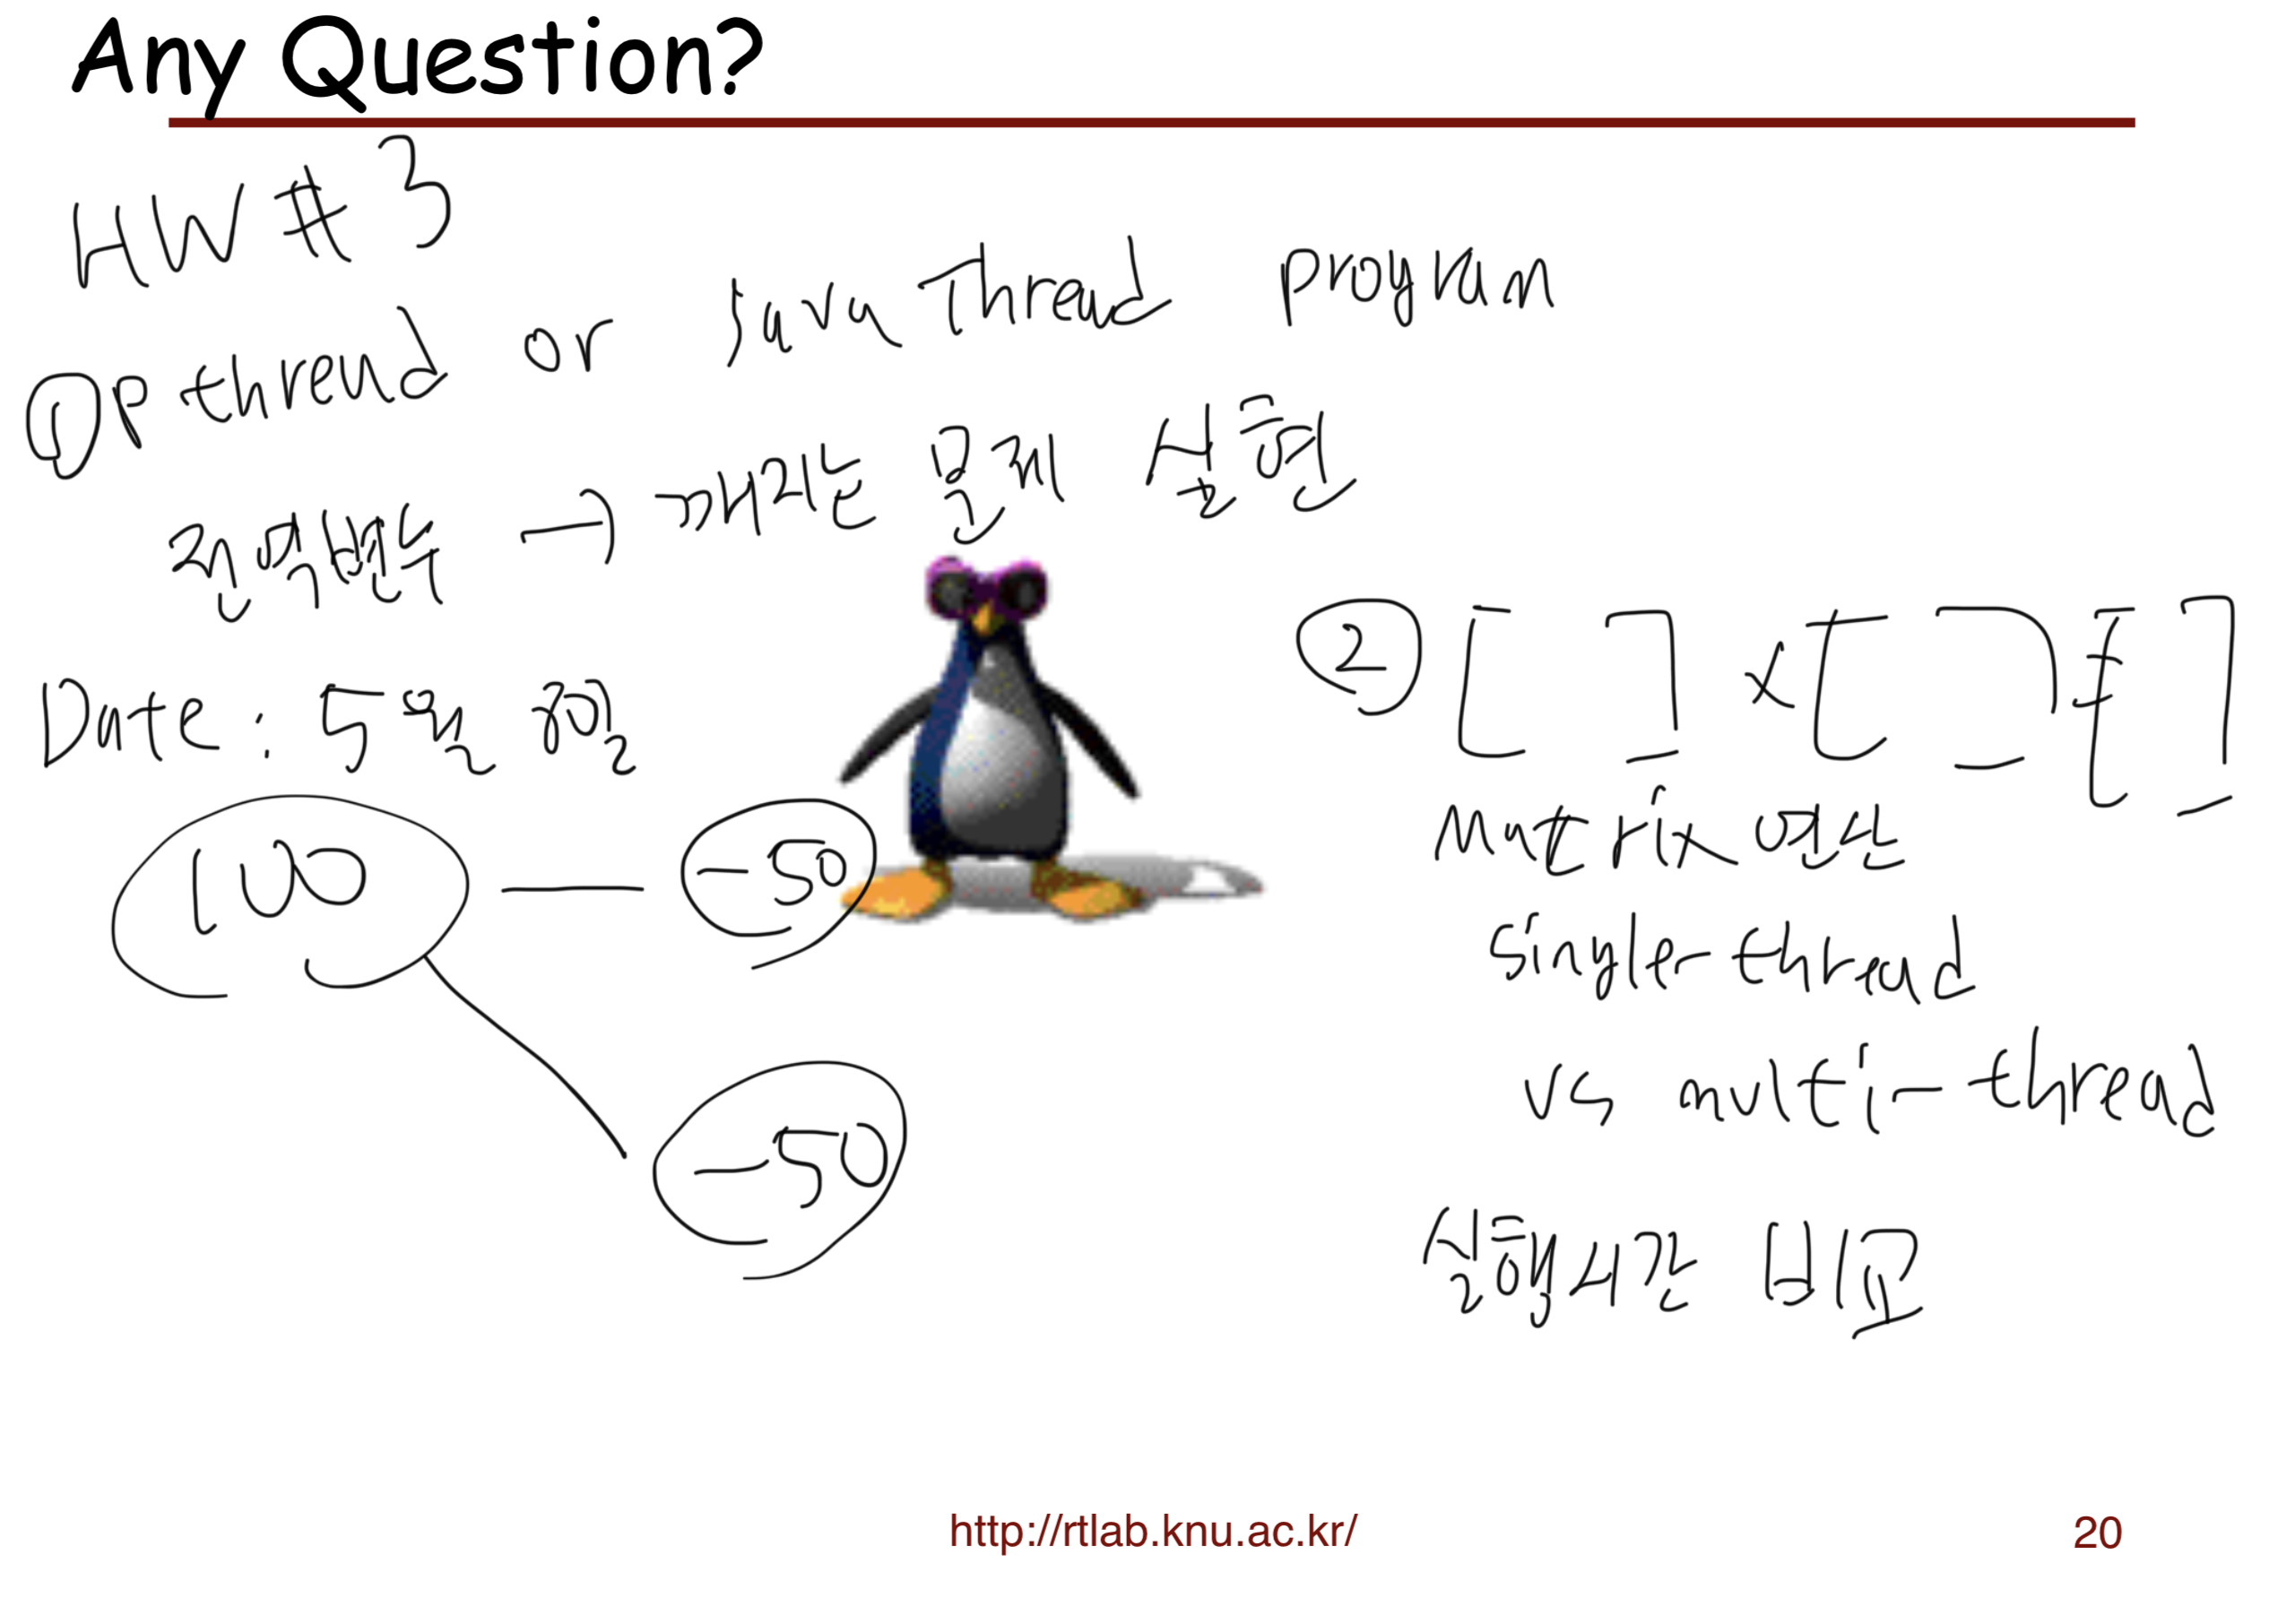 Any Question?
HW # 3
① pthread or java Thread program
전역변수 → 깨지는 문제 실험
Date: 5월 8일
② [ ] x [ ] = [ ]
100 — -50
Matrix 연산
single thread
-50
vs multi-thread
실행시간 비교
http://rtlab.knu.ac.kr/
20